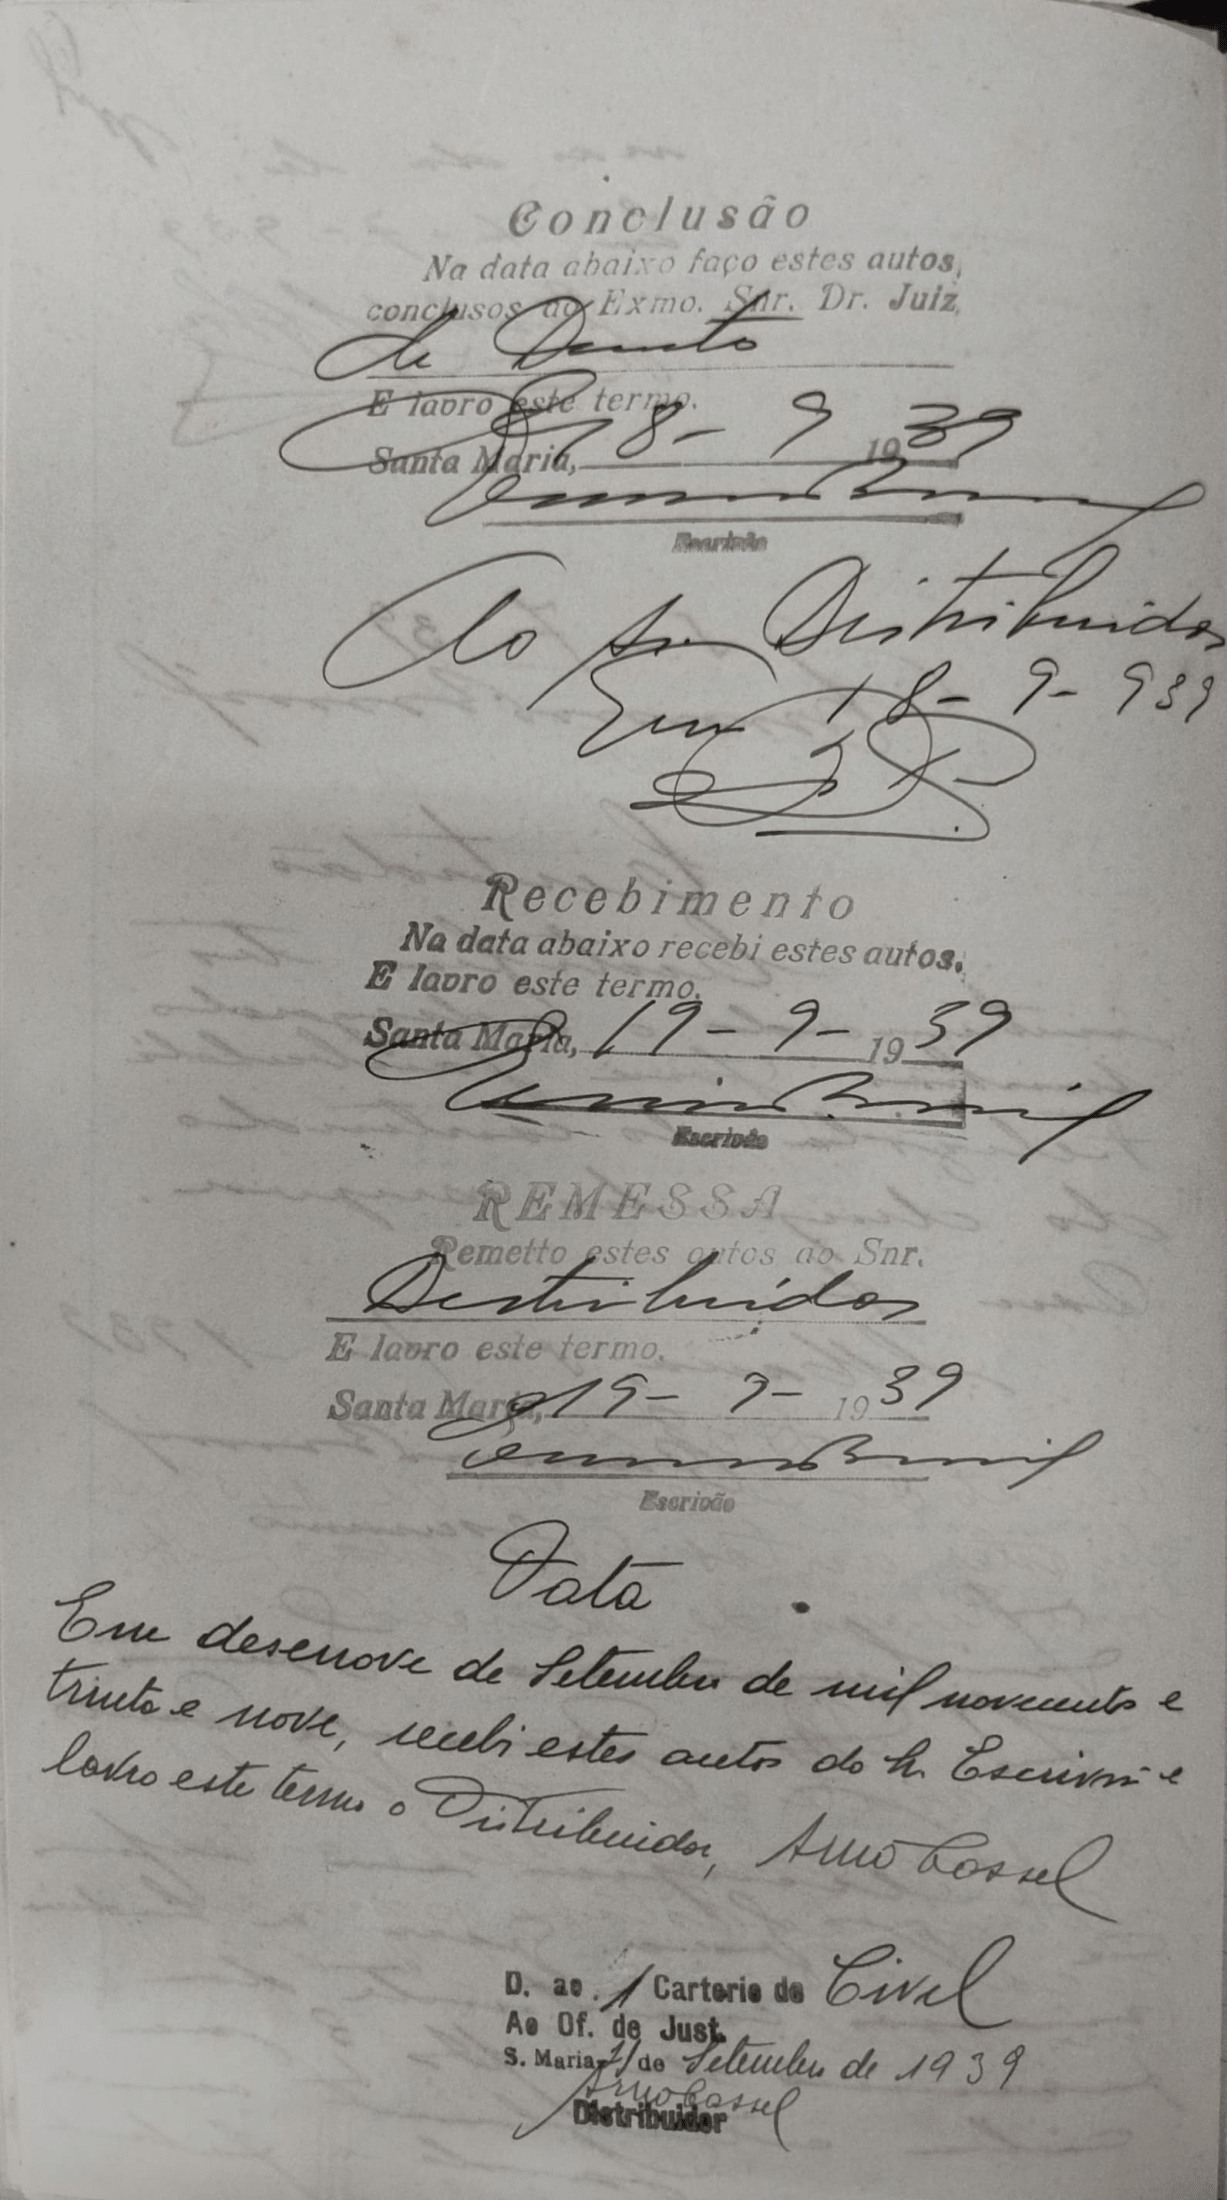 Conclusão
Na data abaixo faço estes autos,
conclusos ao Exmo. Snr. Dr. Juiz
de Direito
E lavro este termo.
Santa Maria, 18 - 9 1939
Escrivão
Ao Sr. Distribuidor
Em 18 - 9 - 939
Recebimento
Na data abaixo recebi estes autos.
E lavro este termo.
Santa Maria, 19 - 9 - 1939
Escrivão
REMESSA
Remetto estes autos ao Snr.
Distribuidor
E lavro este termo.
Santa Maria, 19 - 9 - 1939
Escrivão
Data
Em desenove de Setembro de mil novecentos e
trinta e nove, recebi estes autos do Sr. Escrivão e
lavro este termo o Distribuidor, Arno Cassel
D. ao 1 Cartorio do Civel
Ao Of. de Just.
S. Maria, de Setembro de 1939
Arno Cassel
Distribuidor